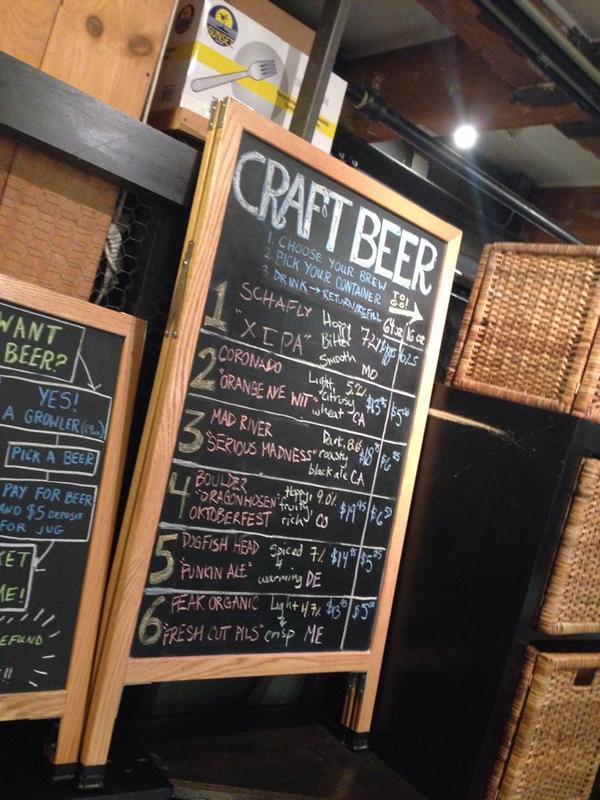 SUNSET
CRAFT BEER
1. CHOOSE YOUR BREW
2. PICK YOUR CONTAINER
3. DRINK → RETURN/REFILL
TO GO!
64oz 16oz
1 SCHAFLY "XIPA"
Hoppy Bitter Smooth 7.2% MO
2 CORONADO "ORANGE AVE WIT"
Light, citrusy wheat 5.2% CA
$5
3 MAD RIVER "SERIOUS MADNESS"
Dark, roasty black ale CA
4 BOULDER "DRAGONHOSEN" OKTOBERFEST
Hoppy fruity rich 9.0% CO
$19.95
5 DOGFISH HEAD "PUNKIN ALE"
Spiced & warming 7% DE
6 PEAK ORGANIC "FRESH CUT PILS"
Light & crisp 4.7% ME
WANT
BEER?
YES!
A GROWLER (64oz)
PICK A BEER
PAY FOR BEER
AND $5 DEPOSIT
FOR JUG
ME!